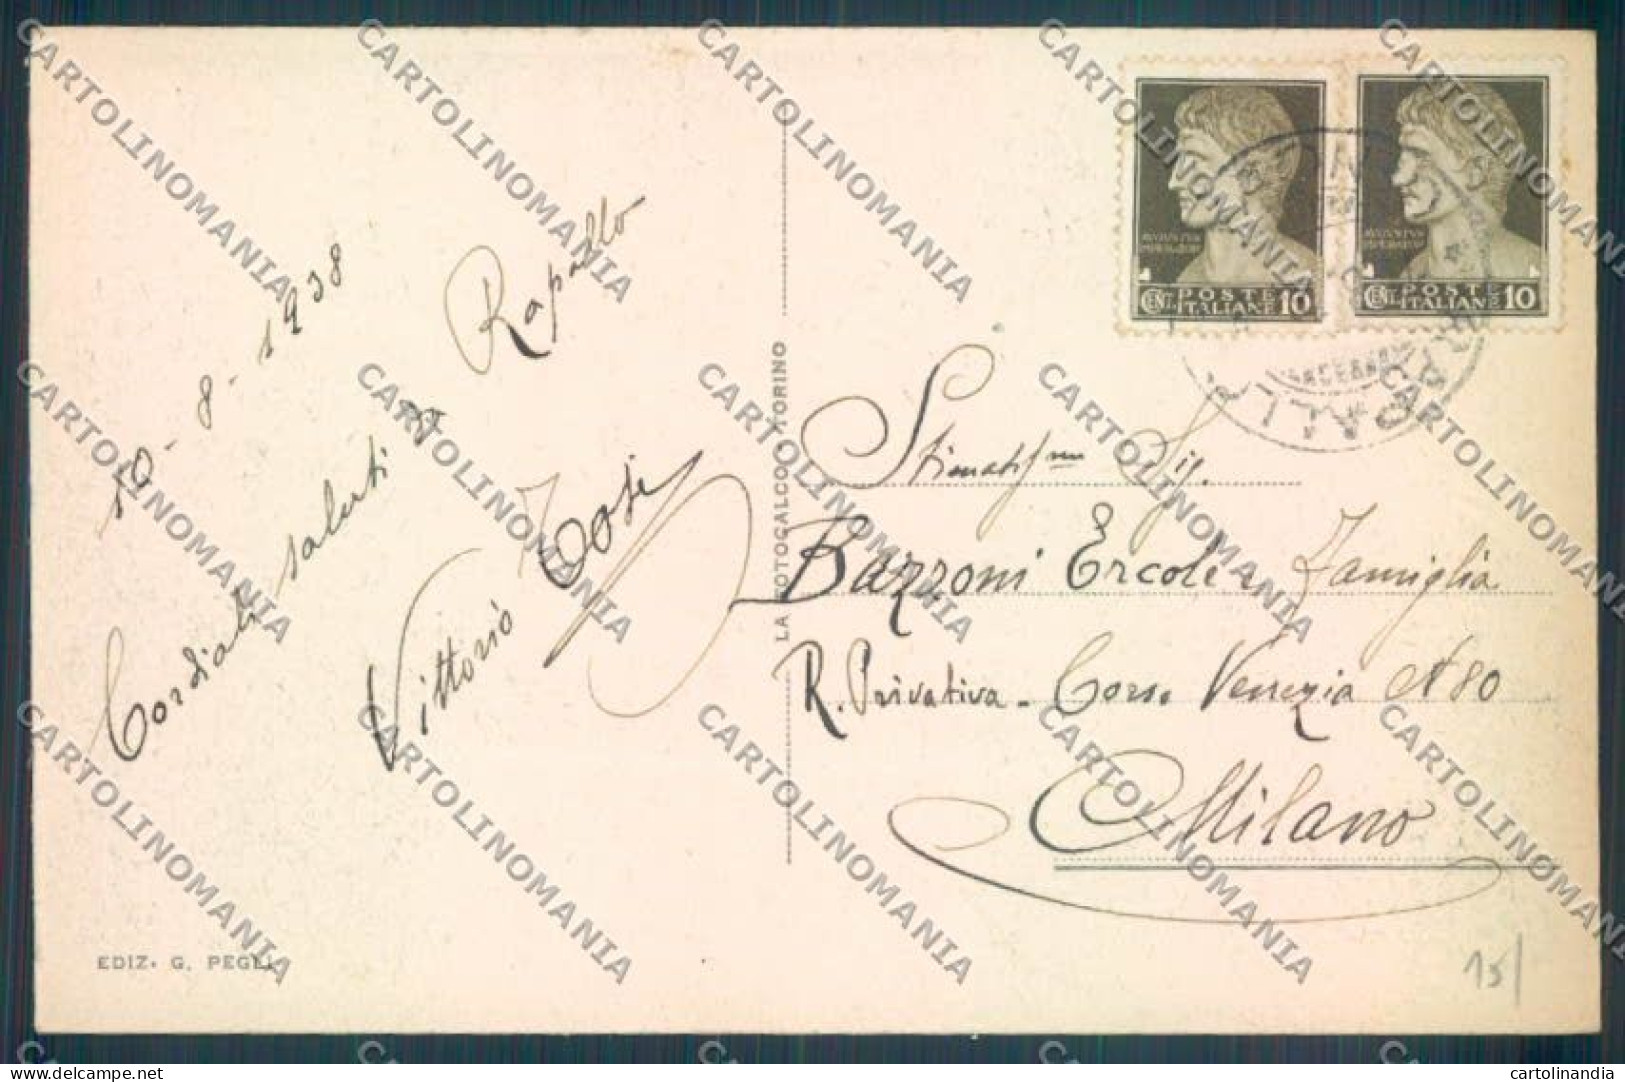 10-8-1938
Cordiali saluti da Rapallo
Vittorio Tosi
EDIZ. G. PEGLI
LA FOTOCALCO - TORINO
AVGVSTVS
IMPERATOR
CENT. POSTE ITALIANE 10
AVGVSTVS
IMPERATOR
CENT. POSTE ITALIANE 10
Sig.
Bazzoni Ercole e Famiglia
R. Privativa - Corso Venezia N 80
Milano
15/
CARTOLINOMANIA
cartolinandia
delcampe.net